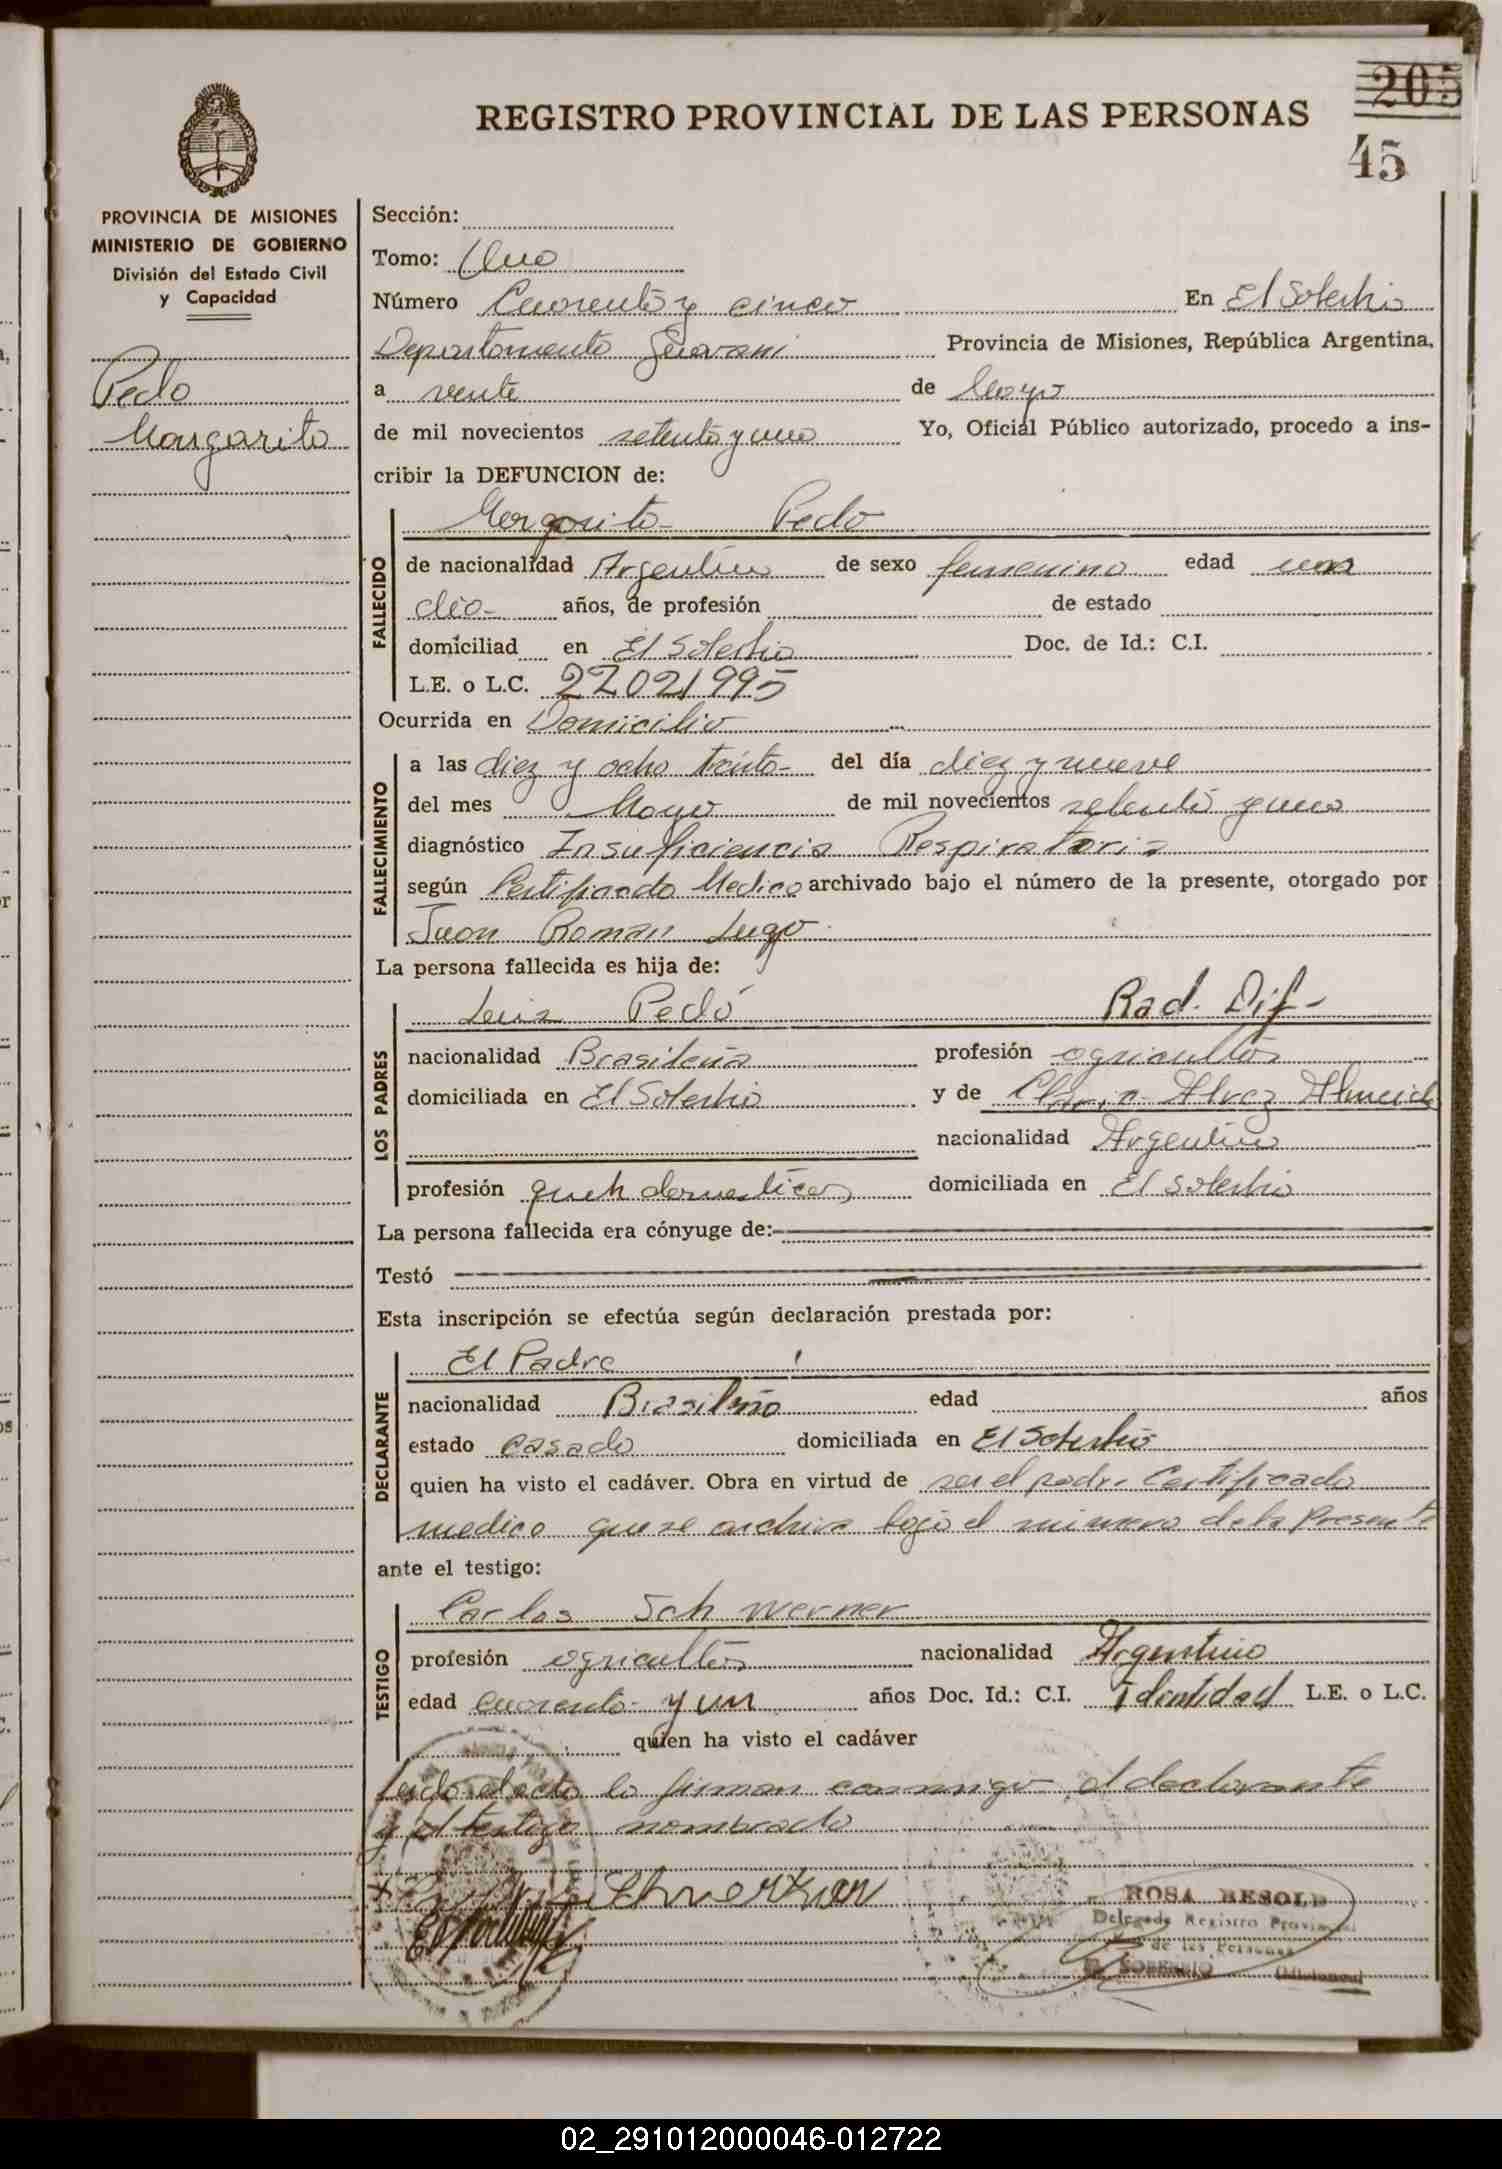 205
REGISTRO PROVINCIAL DE LAS PERSONAS
45
PROVINCIA DE MISIONES
MINISTERIO DE GOBIERNO
División del Estado Civil
y Capacidad
Pedo
Margarita
Sección:
Tomo: Uno
Número Cuarenta y cinco En El Soberbio
Departamento Guarani Provincia de Misiones, República Argentina,
a veinte de Mayo
de mil novecientos setenta y uno Yo, Oficial Público autorizado, procedo a ins-
cribir la DEFUNCION de:
FALLECIDO
Margarita Pedo
de nacionalidad Argentina de sexo femenino edad un
dia- años, de profesión de estado
domiciliad en El Soberbio Doc. de Id.: C.I.
L.E. o L.C. 22021995
Ocurrida en Domicilio
FALLECIMIENTO
a las diez y ocho treinta- del día diez y nueve
del mes Mayo de mil novecientos setenta y uno
diagnóstico Insuficiencia Respiratoria
según Certificado Medico archivado bajo el número de la presente, otorgado por
Juan Román Lugo
La persona fallecida es hija de:
LOS PADRES
Luis Pedó Rad. Dif-
nacionalidad Brasileña profesión agricultor
domiciliada en El Soberbio y de Alvez Almeida
nacionalidad Argentina
profesión queh domesticos domiciliada en El Soberbio
La persona fallecida era cónyuge de:
Testó
Esta inscripción se efectúa según declaración prestada por:
DECLARANTE
El Padre
nacionalidad Brasileño edad años
estado casado domiciliada en El Soberbio
quien ha visto el cadáver. Obra en virtud de ser el padre Certificado
medico que se archiva bajo el numero de la Presente
ante el testigo:
TESTIGO
Carlos Sch werner
profesión agricultor nacionalidad Argentino
edad cuarenta y un años Doc. Id.: C.I. identidad L.E. o L.C.
quien ha visto el cadáver
Leida el acta la firman conmigo el declarante
y el testigo nombrado
ROSA BESOLD
Delegada Registro Provincial
de las Personas
EL SOBERBIO (Misiones)
02_291012000046-012722